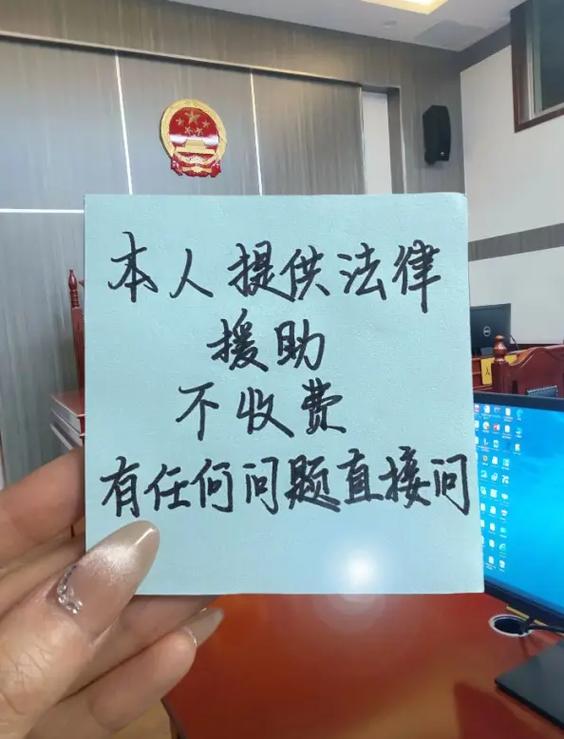 本人提供法律
援助
不收费
有任何问题直接问